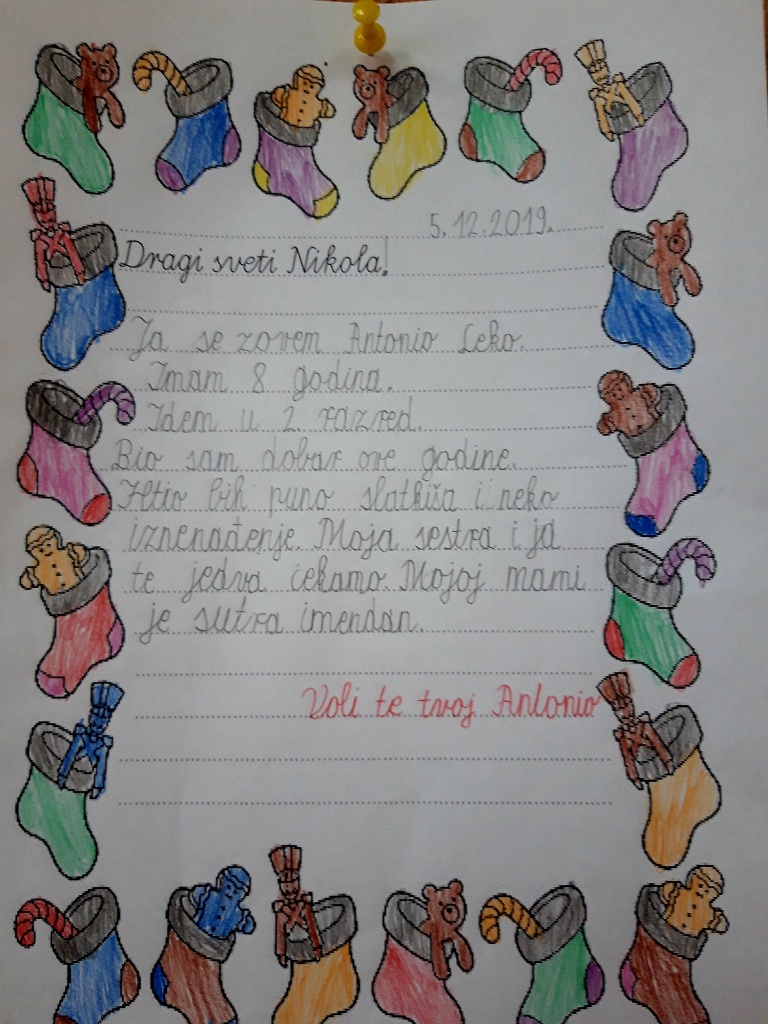 5.12.2019.
Dragi sveti Nikola!
Ja se zovem Antonio Leko.
Imam 8 godina.
Idem u 2. razred.
Bio sam dobar ove godine.
Htio bih puno slatkiša i neko
iznenađenje. Moja sestra i ja
te jedva čekamo. Mojoj mami
je sutra imendan.
Voli te tvoj Antonio